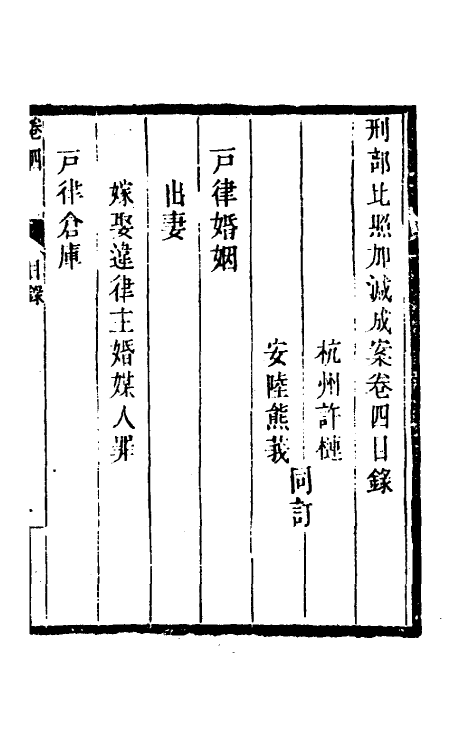 刑部比照加減成案卷四目錄
杭州許槤
安陸熊莪
同訂
戶律婚姻
出妻
嫁娶違律主婚媒人罪
戶律倉庫
卷四
目錄